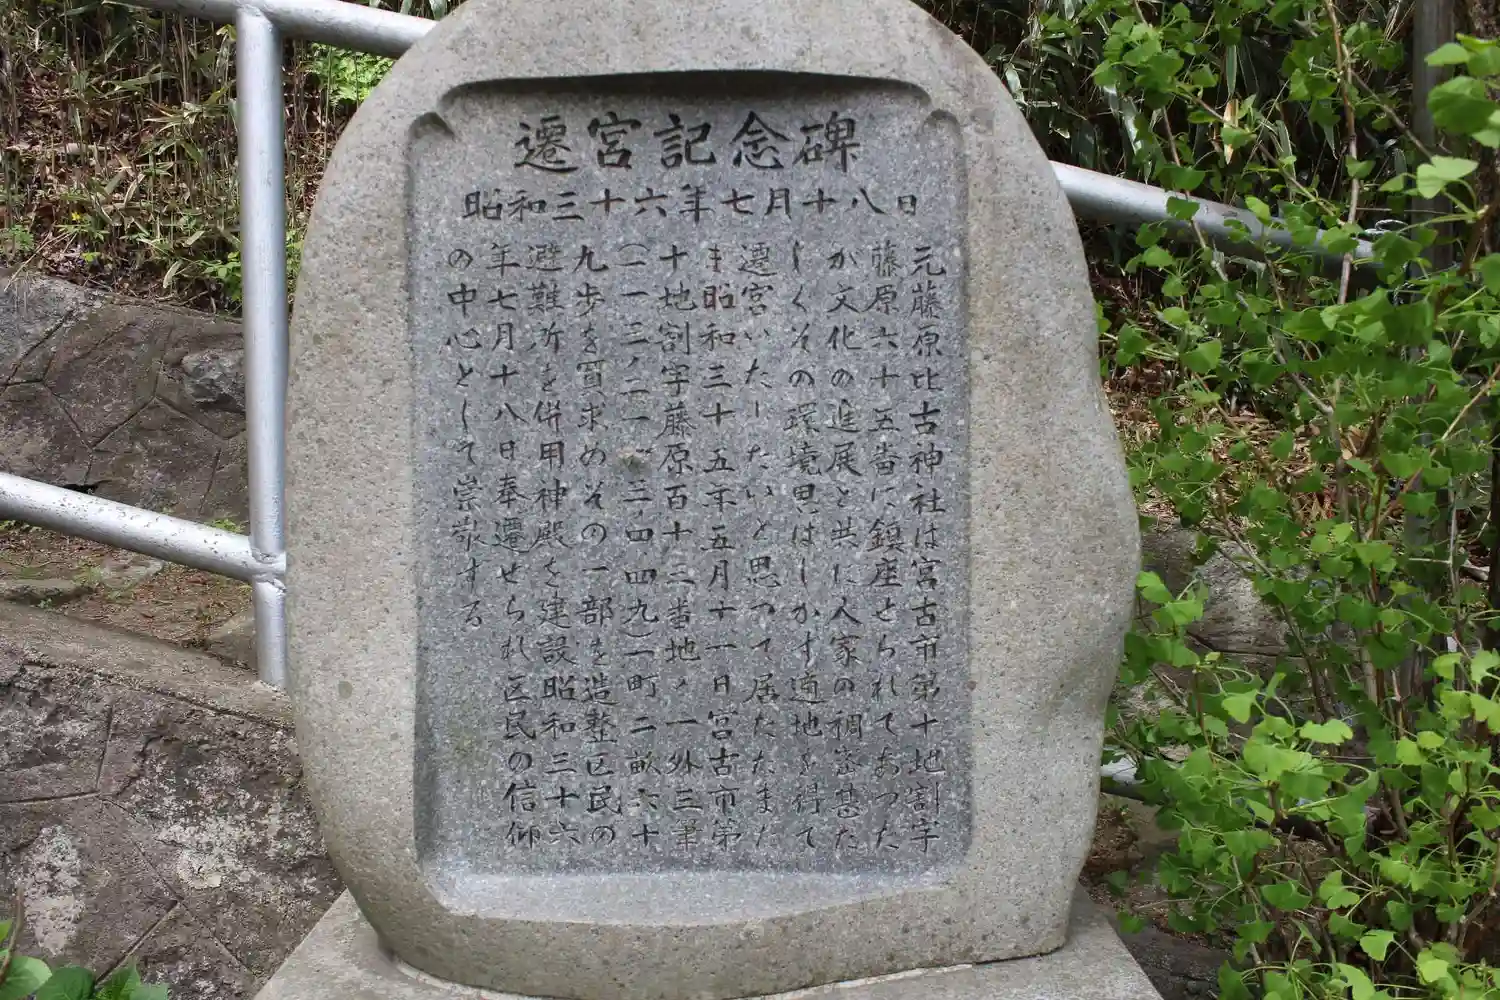 遷宮記念碑
昭和三十六年七月十八日
元藤原比古神社は宮古市第十地割字
藤原六十五番に鎮座せられておつた
が文化の進展と共に人家の稠密甚だ
しくその環境思はしかず適地を得て
遷宮いたしたいと思つて居たたまた
ま昭和三十五年五月十一日宮古市第
十地割字藤原百十三番地ノ一外三筆
（一一三ノ二一、三、四四九）一町二畝六十
九歩を買求めその一部を造整区民の
避難所を併用神殿を建設昭和三十六
年七月十八日奉遷せられ区民の信仰
の中心として崇敬する